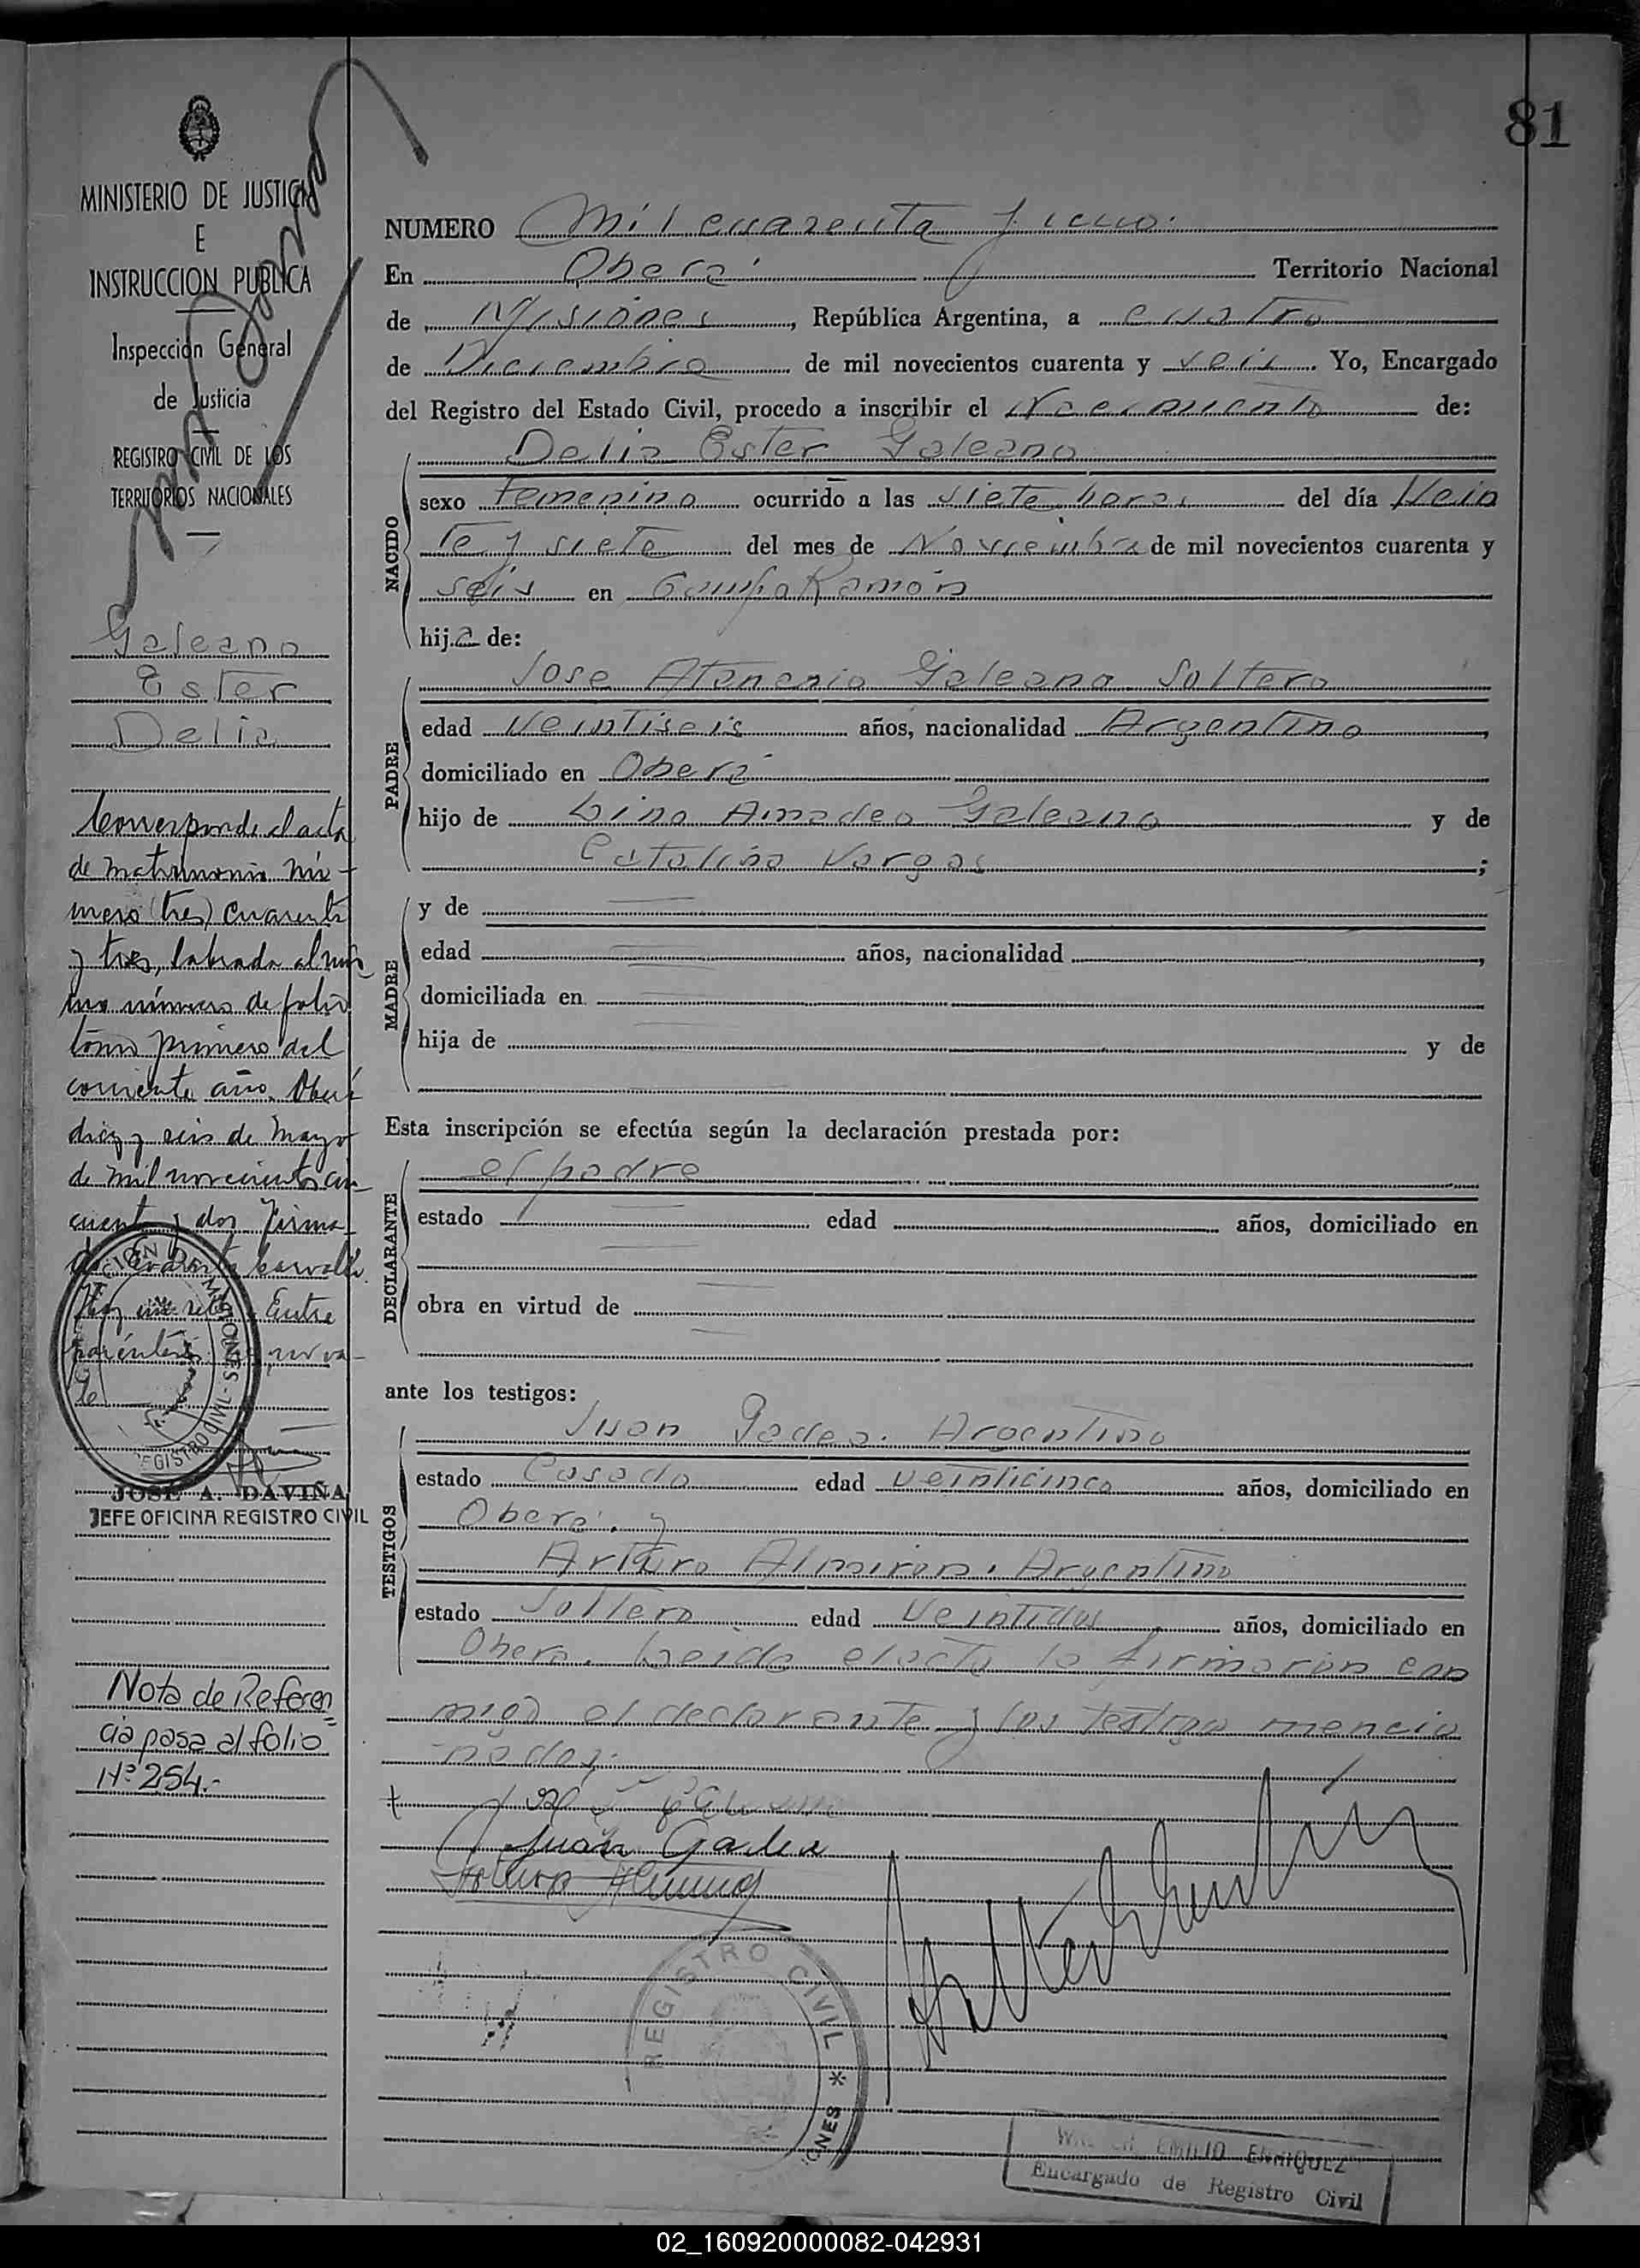 81
MINISTERIO DE JUSTICIA
E
INSTRUCCION PUBLICA
Inspección General
de Justicia
REGISTRO CIVIL DE LOS
TERRITORIOS NACIONALES
Galeano
Ester
Delia
Corresponde al acta
de matrimonio nú-
mero (tres) cuarenta
y tres, labrada al mis
mo número de folio
tomo primero del
corriente año. Oberá
diez y seis de Mayo
de mil novecientos cin-
cuenta y dos Firma-
do
Hay un sello. Entre
paréntesis no va-
le
REGISTRO CIVIL - MISIONES
JOSE A. DAVIÑA
JEFE OFICINA REGISTRO CIVIL
Nota de Referen=
cia pasa al folio
Nº 254.-
NUMERO Mil cuarenta y uno.
En Oberá Territorio Nacional
de Misiones, República Argentina, a cuatro
de Diciembre de mil novecientos cuarenta y seis. Yo, Encargado
del Registro del Estado Civil, procedo a inscribir el Nacimiento de:
NACIDO
Delia Ester Galeano
sexo femenino ocurrido a las siete horas del día Vein
te y siete del mes de Noviembre de mil novecientos cuarenta y
seis en Campo Ramón
hija de:
PADRE
Jose Atanacio Galeano Soltero
edad Veintiseis años, nacionalidad Argentino,
domiciliado en Oberá
hijo de Lino Amadeo Galeano y de
Catalina Vargas;
MADRE
y de
edad años, nacionalidad,
domiciliada en
hija de y de
Esta inscripción se efectúa según la declaración prestada por:
DECLARANTE
el padre
estado edad años, domiciliado en
obra en virtud de
ante los testigos:
TESTIGOS
Juan Argentino
estado Casado edad veinticinco años, domiciliado en
Oberá. y
Arturo Almiron. Argentino
estado Soltero edad Veintidos años, domiciliado en
Obera. Leida el acta la firmaron con
migo el declarante y los testigos mencio
nados.
Juan
Arturo
REGISTRO CIVIL * MISIONES
EMILIO ENRIQUEZ
Encargado de Registro Civil
02_160920000082-042931